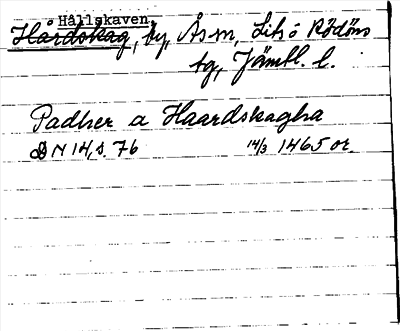 Hållskaven
Hårdskag, by, Ås sn, Lits o Rödöns
tg, Jämtl. l.
Padher a Haardskagha
DN 14, s. 76 14/3 1465 or.